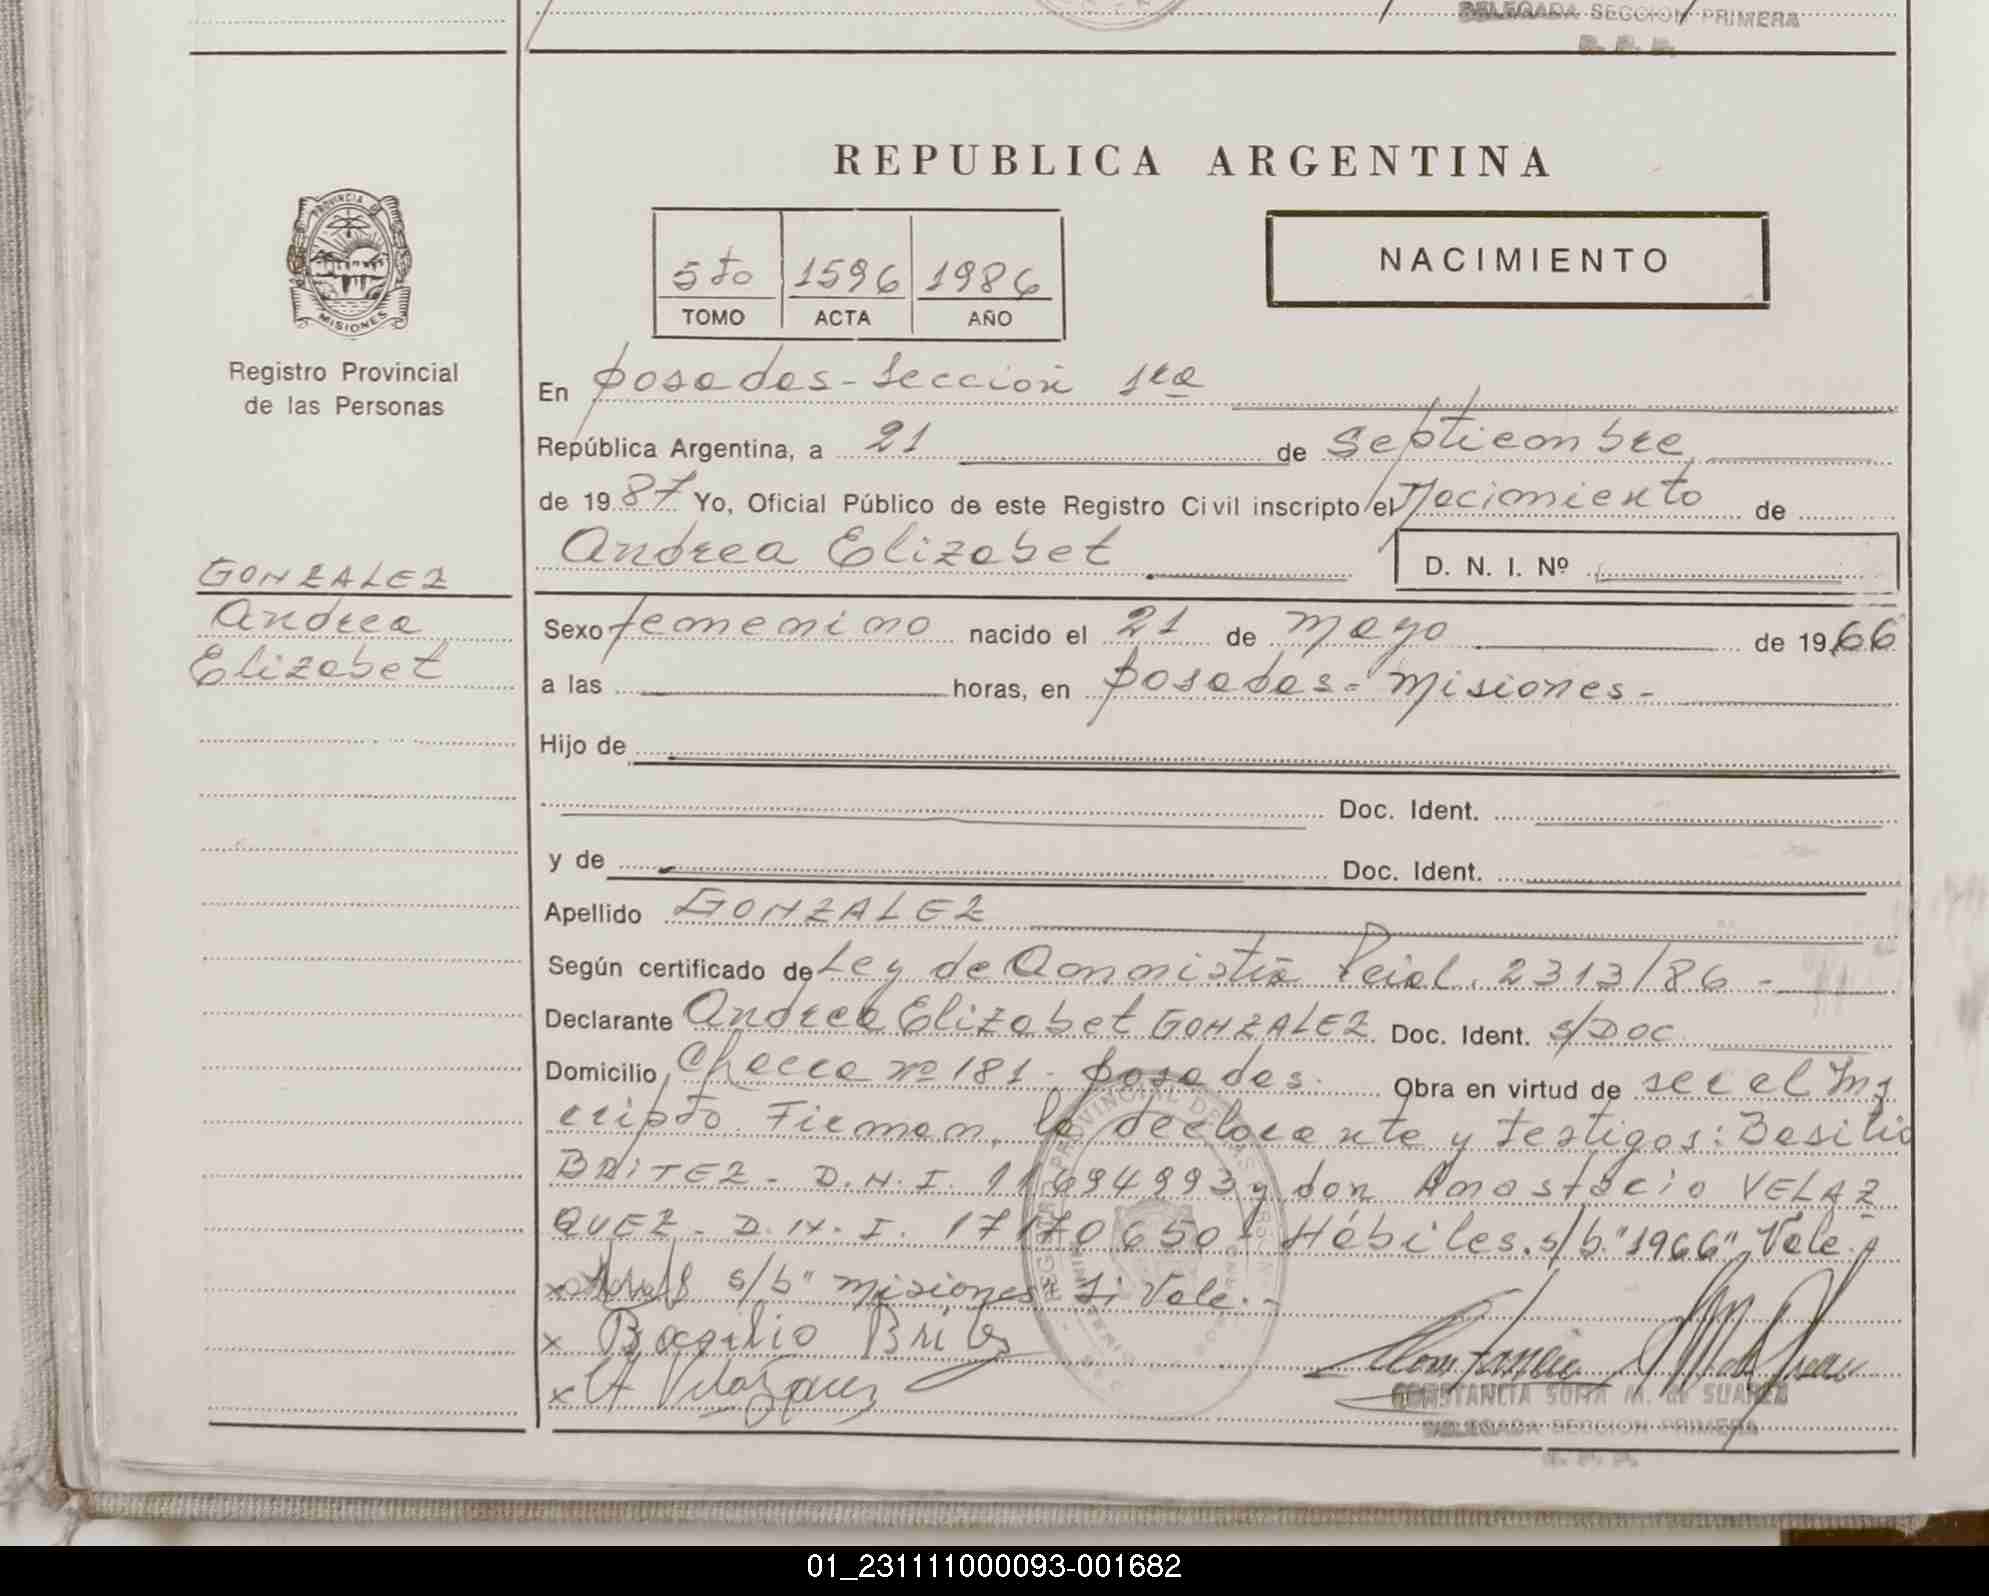 DELEGADA SECCION PRIMERA
R. P. P.
REPUBLICA ARGENTINA
PROVINCIA DE
MISIONES
5to 1596 1986
TOMO ACTA AÑO
NACIMIENTO
Registro Provincial
de las Personas
GONZALEZ
Andrea
Elizabet
En posadas - Sección 1ra
República Argentina, a 21 de Septiembre
de 1987 Yo, Oficial Público de este Registro Civil inscripto el Nacimiento de
Andrea Elizabet D. N. I. Nº
Sexo femenino nacido el 21 de Mayo de 1966
a las horas, en posadas - Misiones -
Hijo de
Doc. Ident.
y de Doc. Ident.
Apellido GONZALEZ
Según certificado de Ley de Amnistia Pcial. 2313/86 -
Declarante Andrea Elizabet GONZALEZ Doc. Ident. s/Doc
Domicilio Chacra nº 181 - posadas. Obra en virtud de ser el Ins
cripto. Firman, la declarante y testigos: Basilio
BRITEZ - D.N.I. 11694993 y don Anastacio VELAZ
QUEZ - D.N.I. 17170650 - Hábiles. s/b "1966", Vale.
s/b" misiones" Si Vale. -
x Bacilio Britez
x A Velazquez
CONSTANCIA SOFIA M. de SUAREZ
DELEGADA SECCION PRIMERA
R. P. P.
01_231111000093-001682